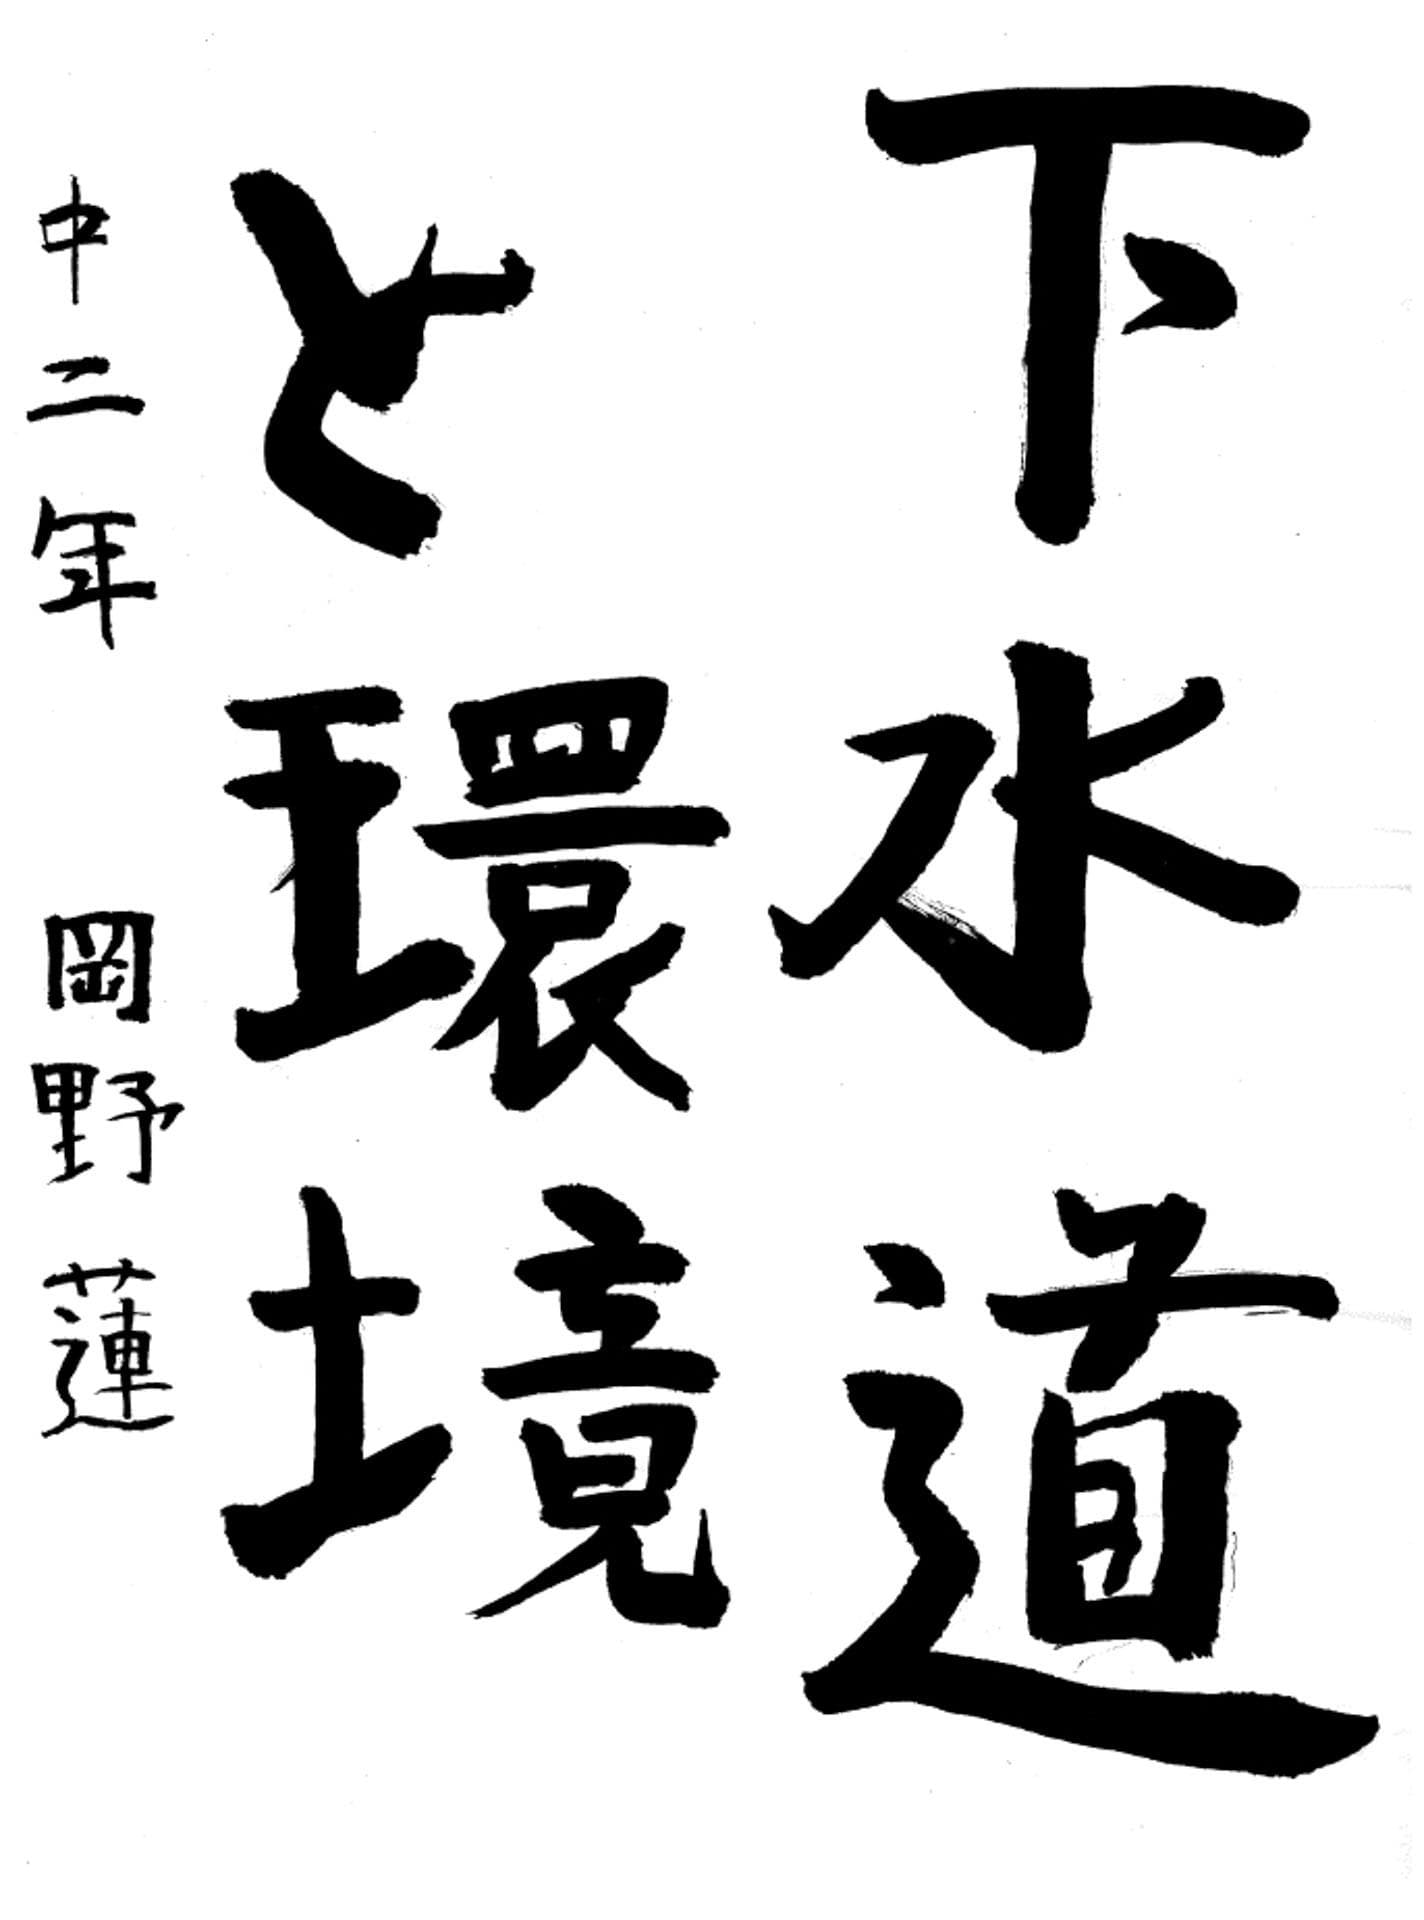 下水道
と環境
中二年 岡野蓮